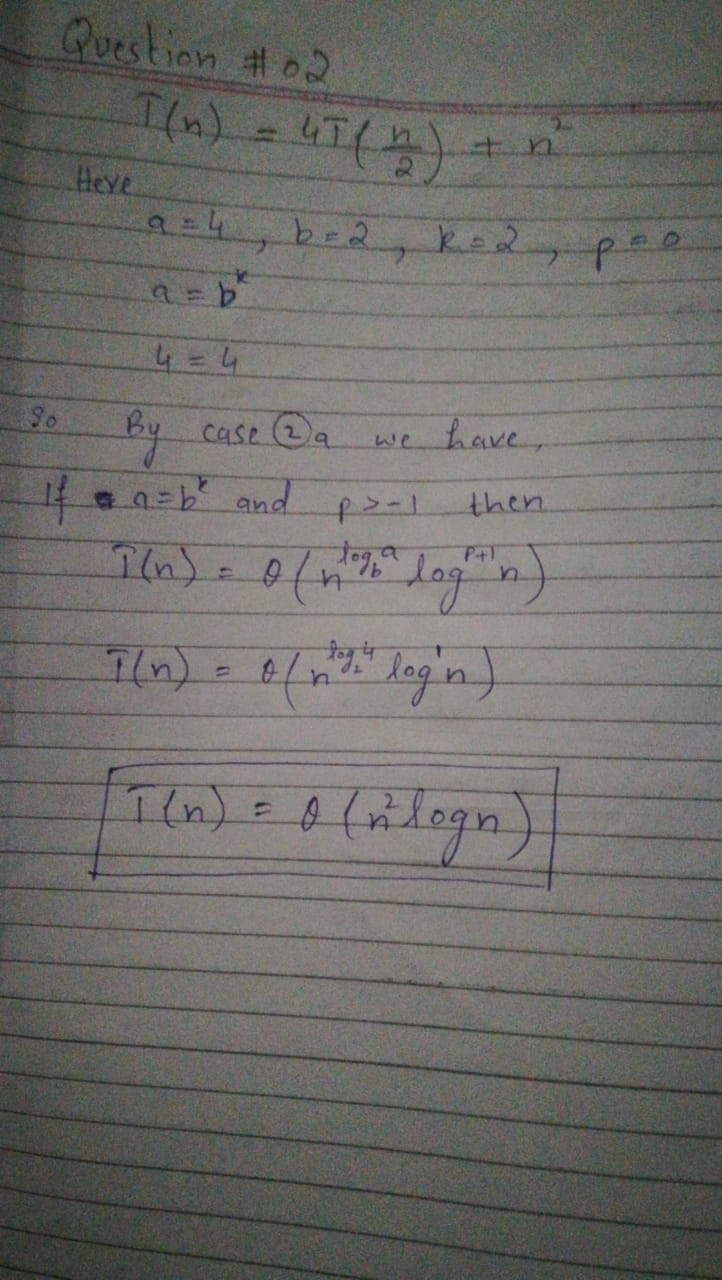 Question # 02
T(n) = 4T(n/2) + n²
Here
a = 4, b = 2, k = 2, p = 0
a = b^k
4 = 4
So By case ② a we have,
If a = b^k and p > -1 then
T(n) = θ(n^log_b a log^p+1 n)
T(n) = θ(n^log_2 4 log^1 n)
T(n) = θ(n² log n)